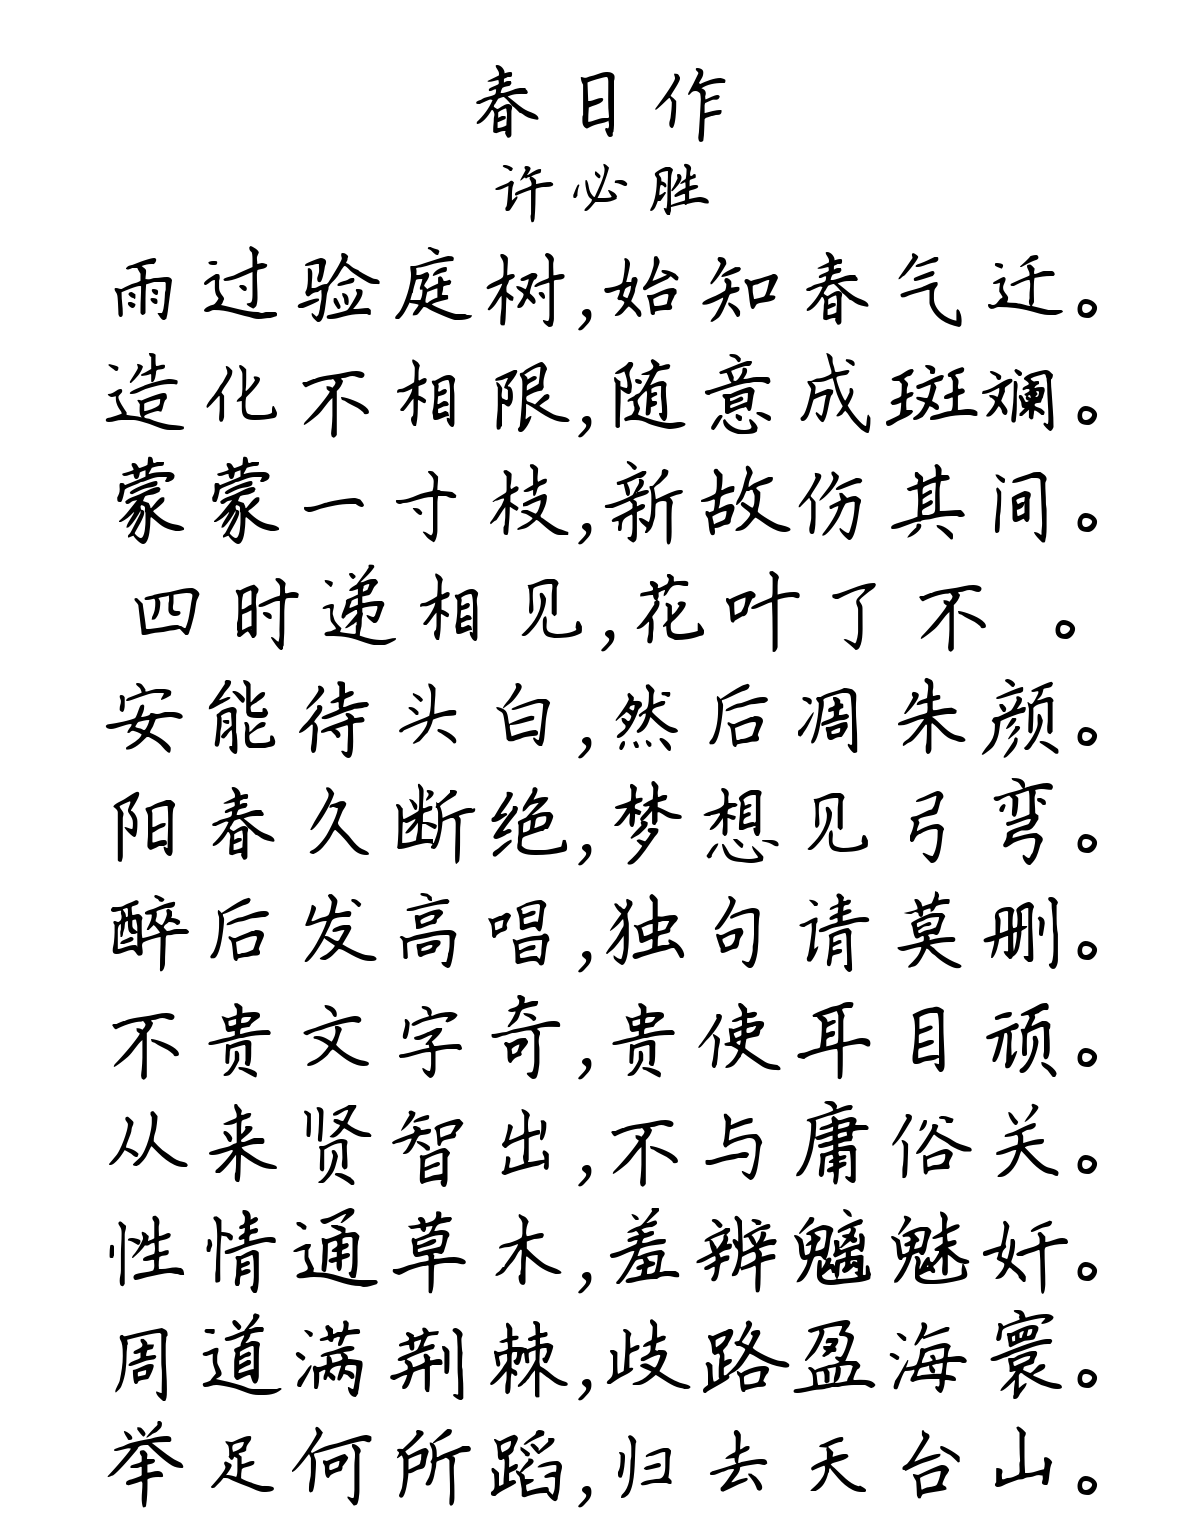 春日作
许必胜
雨过验庭树,始知春气迁。
造化不相限,随意成斑斓。
蒙蒙一寸枝,新故伤其间。
四时递相见,花叶了不 。
安能待头白,然后凋朱颜。
阳春久断绝,梦想见弓弯。
醉后发高唱,独句请莫删。
不贵文字奇,贵使耳目顽。
从来贤智出,不与庸俗关。
性情通草木,羞辨魑魅奸。
周道满荆棘,歧路盈海寰。
举足何所蹈,归去天台山。